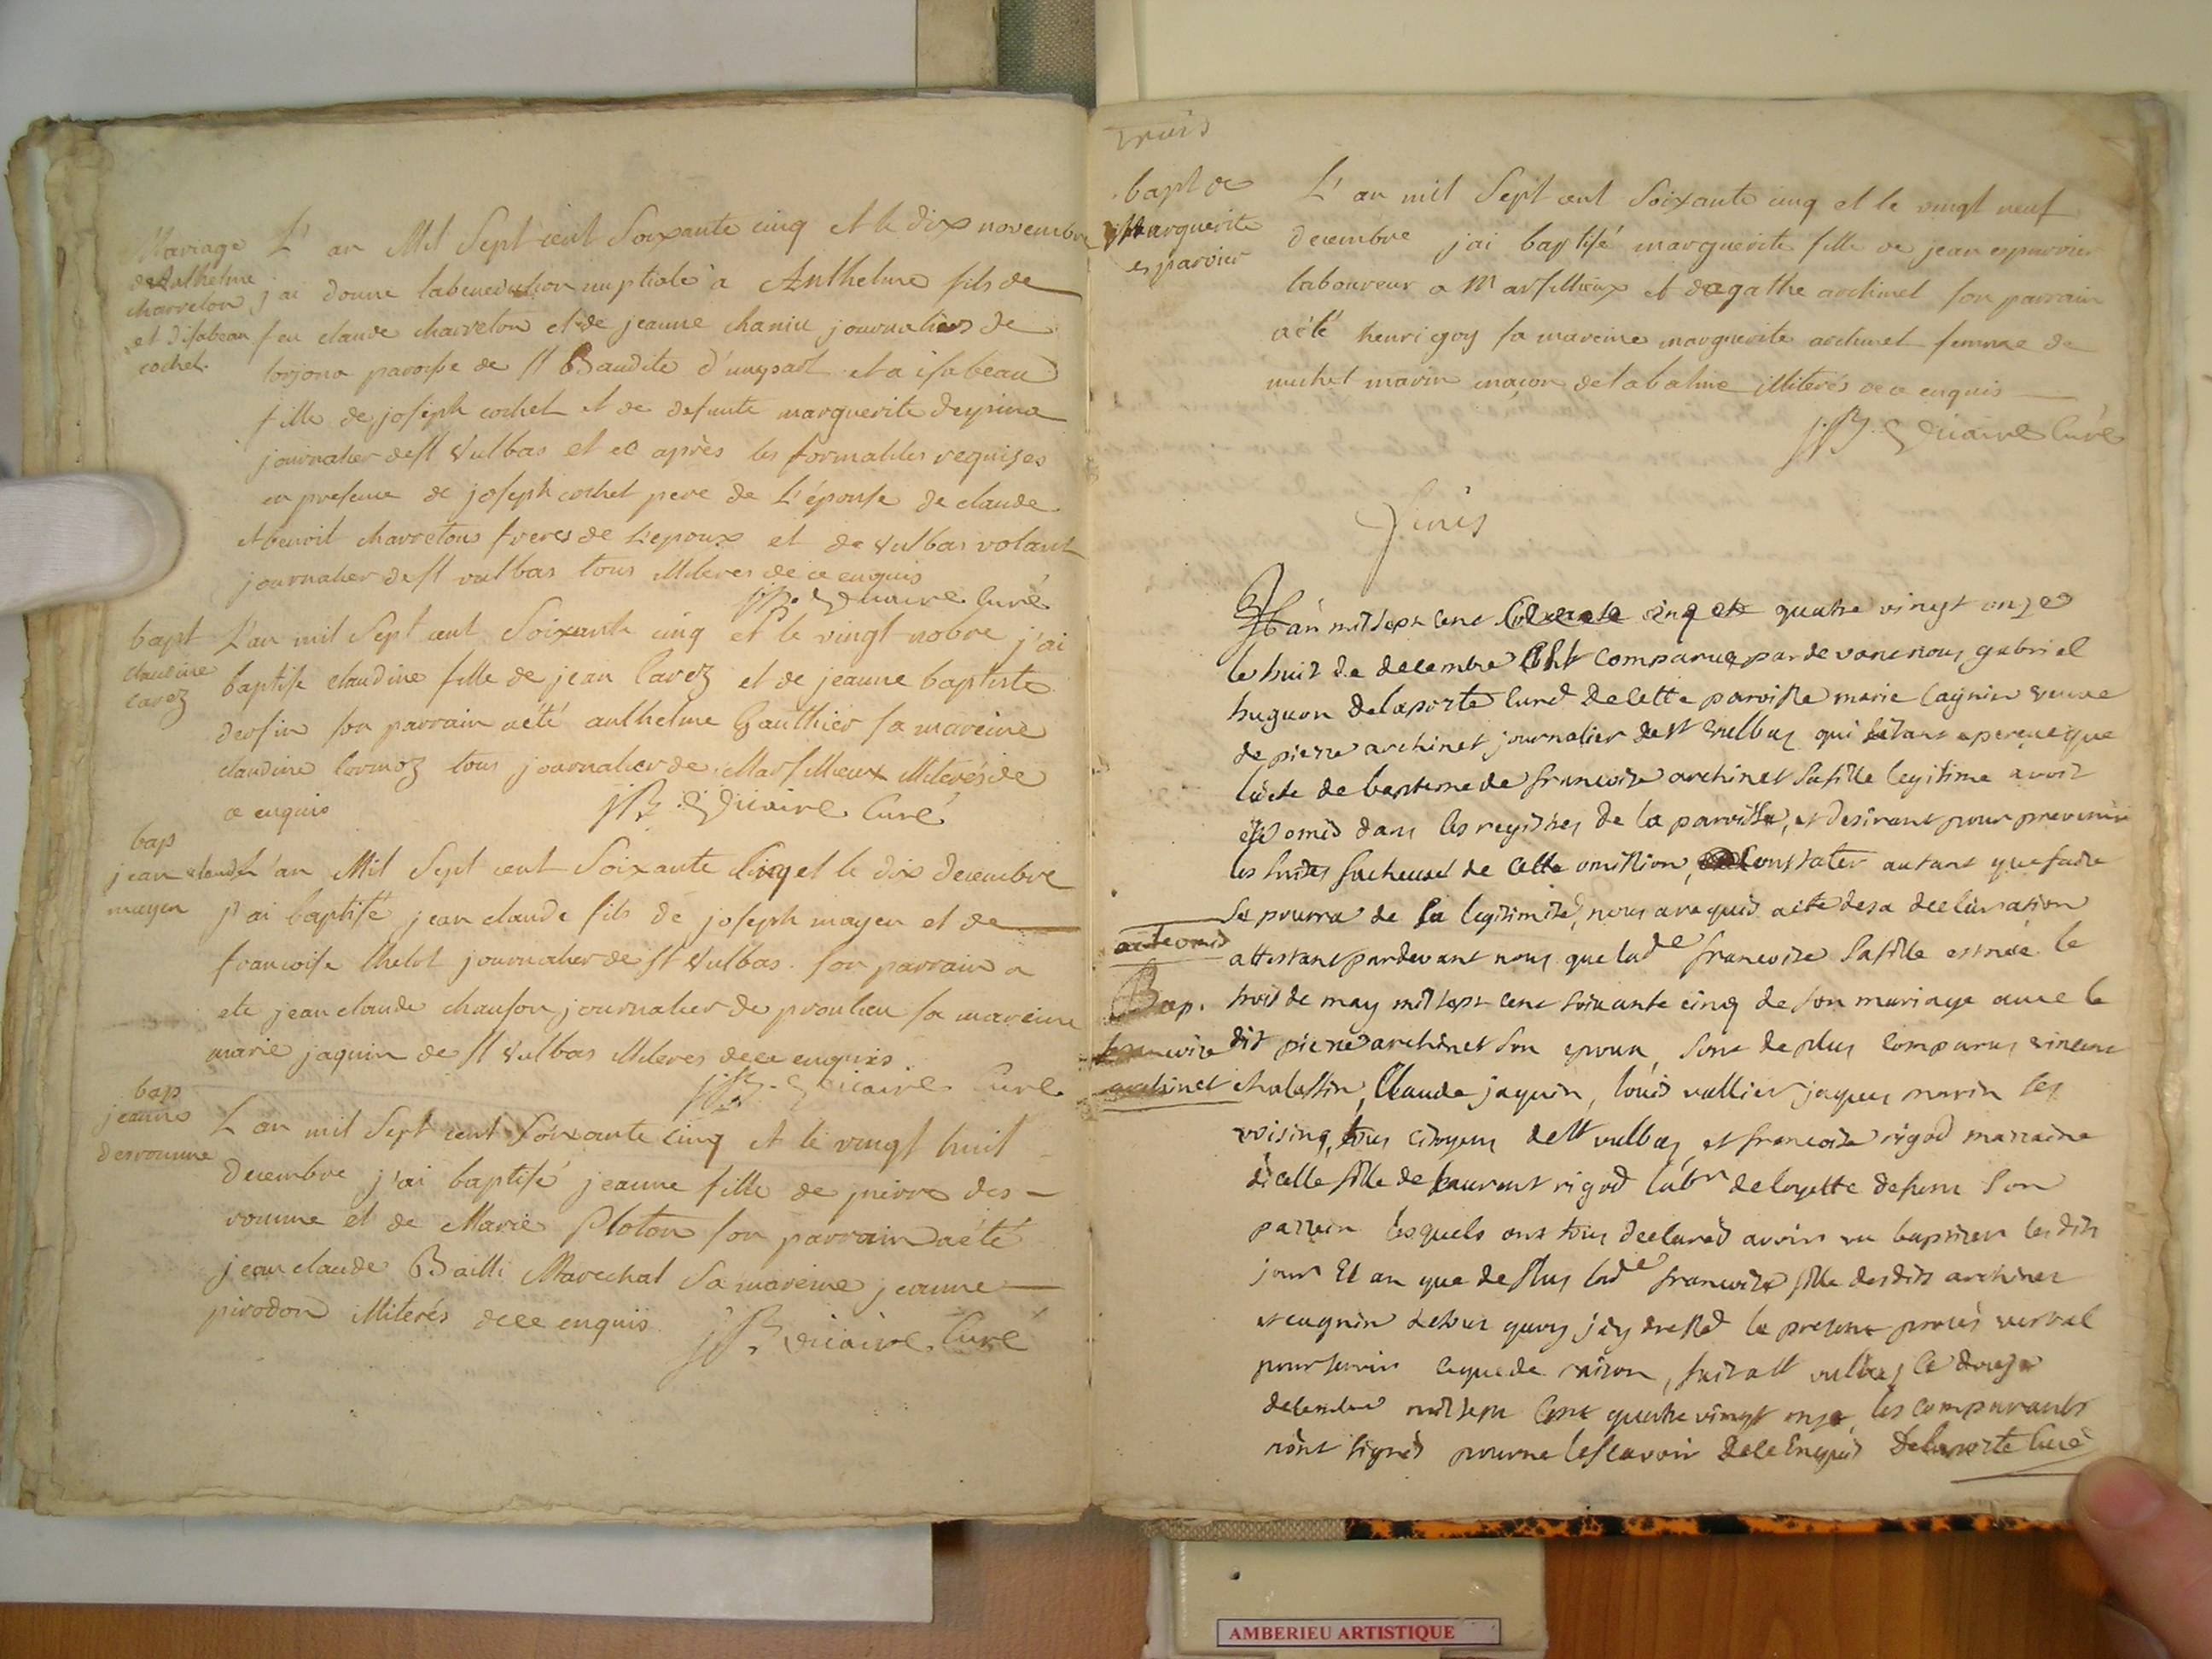 Mariage
de Anthelme
charreton
et d'isabeau
cochet.
L'an Mil Sept cent Soixante cinq et le dix novembre
j'ai donné la benediction nuptiale à Anthelme fils de
feu claude charreton et de jeanne chaniu journaliers de
torjona paroisse de st Baudite et a isabeau
fille de joseph cochet et de defunte marguerite
journalier de st Vulbas et ce après les formalités requises
en presence de joseph cochet pere de L'épouse de claude
et benoit charretons freres de L'epoux et de vulbas volant
journalier de st vulbas tous illiteres de ce enquis
curé
bapt
claudine
cavoz
L'an mil Sept cent Soixante cinq et le vingt nobre j'ai
baptisé claudine fille de jean cavoz et de jeanne baptiste
derfin son parrain a été anthelme Gauthier sa mareine
claudine cormoz tous journalier de Marfillieux illiterés de
ce enquis
Curé
bap
jean claude
mayen
L'an Mil Sept cent Soixante Cinq et le dix Decembre
j'ai baptisé jean claude fils de joseph mayen et de
francoise thelot journalier de st Vulbas. son parrain a
ete jean claude chanson journalier de proulieu sa mareine
marie jaquin de st Vulbas illiteres de ce enquis
Curé
bap
jeanne
desroume
L'an mil Sept cent Soixante Cinq et le vingt huit
Decembre j'ai baptisé jeanne fille de pierre des-
roume et de Marie Ploton son parrain a été
jean claude Bailli Marechal Sa mareine jeanne
pirodon illiterés de ce enquis
Curé
trois
bapt de
Marguerite
esparvier
L'an mil Sept cent Soixante cinq et le vingt neuf
decembre j'ai baptisé marguerite fille de jean esparvier
laboureur a Marfillieux et d'agathe archinet son parrain
a été henri goy sa mareine marguerite archinet femme de
michel marin maçon de la balme illiterés de ce enquis
Curé
finis
L'an mil sept cent quatre vingt onze
le huit de decembre comparue par devant nous gabriel
huguon delaporte curé de cette paroisse marie cagnin veuve
de pierre archinet journalier de st vulbas qui s'étant aperçue que
l'acte de bapteme de francoise archinet sa fille legitime avoit
été omis dans les registres de la paroisse, et desirant pour prevenir
les suites facheuses de cette omission, constater autant que faire
se pourra de sa legitimité, nous a requis acte de sa declaration
acte omis
attestant pardevant nous que lade francoise sa fille est née le
Bap.
trois de may mil sept cent soixante cinq de son mariage avec le
francoise
dit pierre archinet son epoux, sont de plus comparus vincent
archinet
chalassin, Claude jaquin, louis vallier jaques marin ses
voisins, tous citoyens de st vulbas, et francoise rigod marraine
d'icelle fille de laurent rigod labr de loyette defunt son
parrein lesquels ont tous declarés avoir vu baptiser lesdits
jour et an que de plus lade francoise fille desdits archinet
et cagnin de tout quoy j'ay dressé le present procès verbal
pour servir ce que de raison, fait a st vulbas le douze
decembre mil sept cent quatre vingt onze, les comparants
n'ont signés pour ne le scavoir de ce Enquis Delaporte Curé
AMBERIEU ARTISTIQUE